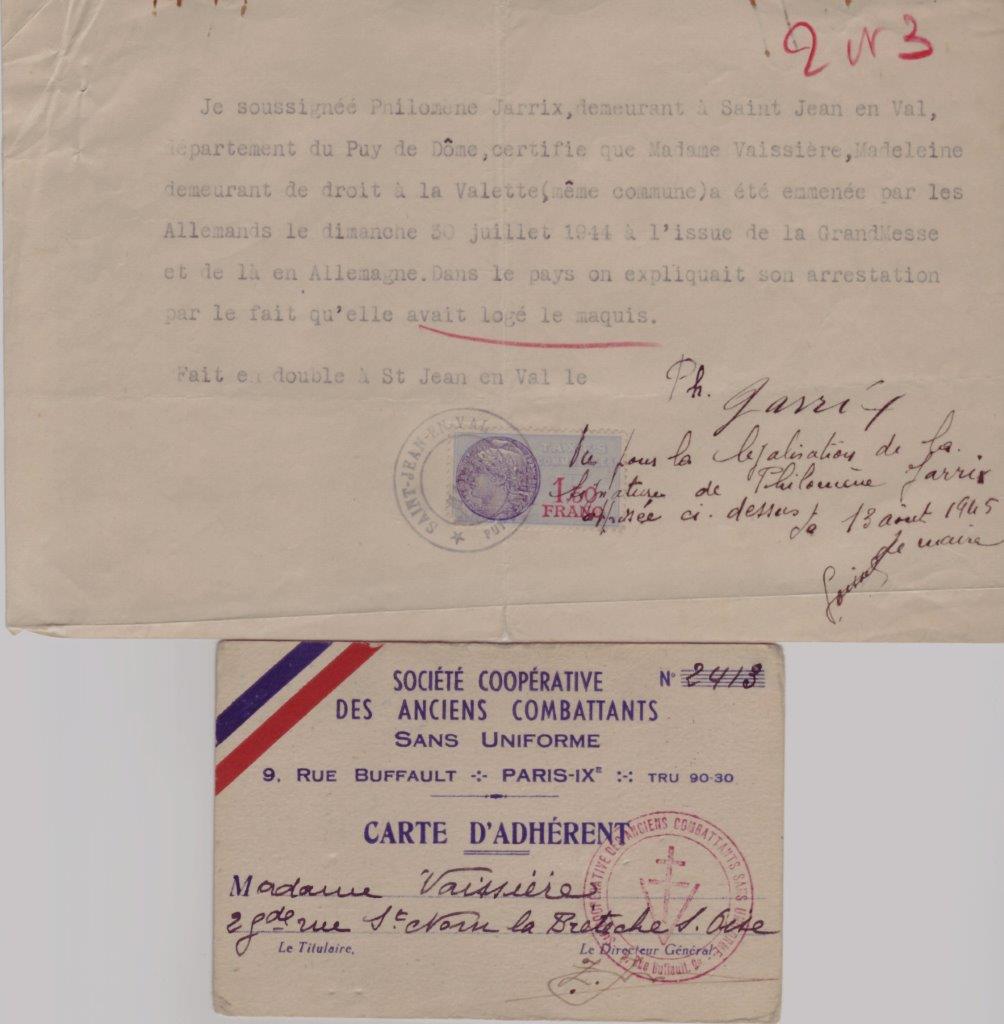 2 N 3
Je soussigneé Philomene Jarrix,demeurant à Saint Jean en Val,
département du Puy de Dôme,certifie que Madame Vaissière,Madeleine
demeurant de droit à la Valette(même commune)a été emmenée par les
Allemands le dimanche 30 juillet 1944 à l'issue de la GrandMesse
et de là en Allemagne.Dans le pays on expliquait son arrestation
par le fait qu'elle avait logé le maquis.
Fait en double à St Jean en Val le
Ph. Jarrix
Vu pour la légalisation de la
signature de Philomène Jarrix
apposée ci-dessus
le 13 août 1945
Le maire
SAINT-JEAN-EN-VAL
PUY
1.50
FRANC
SOCIÉTÉ COOPÉRATIVE
N° 2413
DES ANCIENS COMBATTANTS
SANS UNIFORME
9, RUE BUFFAULT -:- PARIS-IXE :-: TRU 90-30
CARTE D'ADHÉRENT
Madame Vaissière
29 gde rue St Nom la Bretèche S. Oise
Le Titulaire,
Le Directeur Général,
COOPÉRATIVE DES ANCIENS COMBATTANTS SANS UNIFORME
Rue Buffault